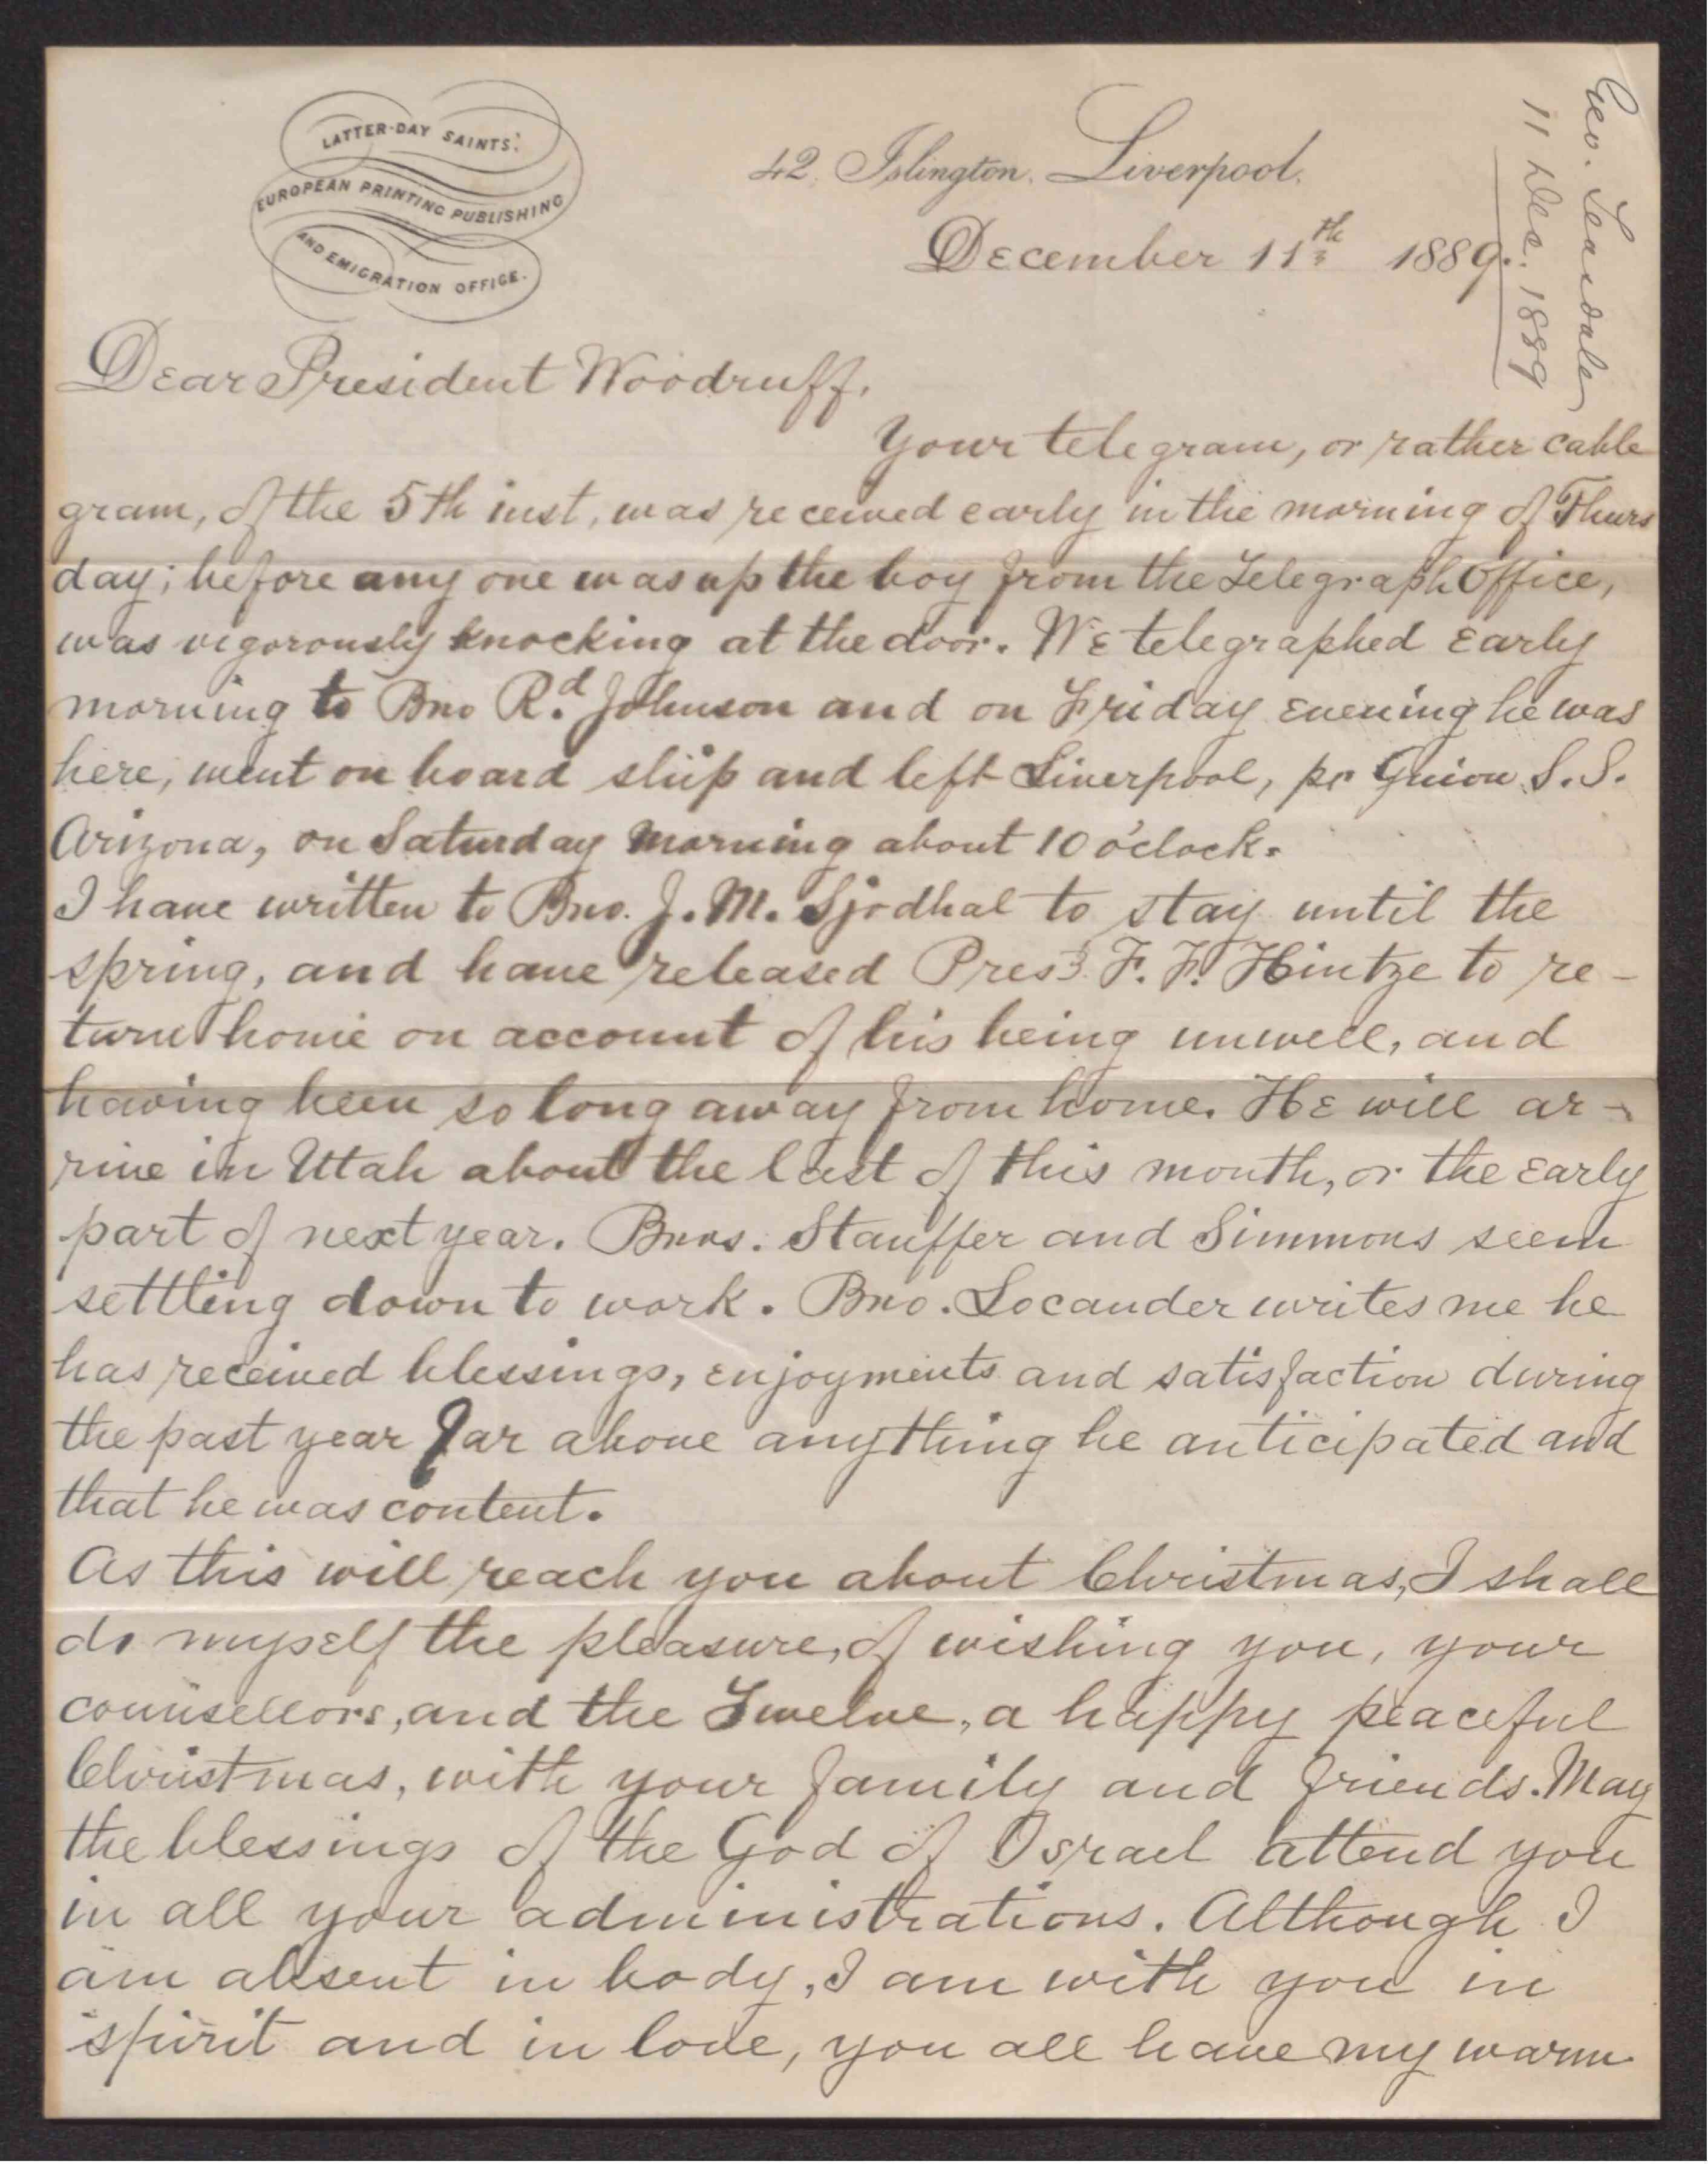 LATTER-DAY SAINTS'
EUROPEAN PRINTING PUBLISHING
AND EMIGRATION OFFICE.
42, Islington, Liverpool.
December 11th 1889.
Geo. Teasdale
11 Dec. 1889
Dear President Woodruff.
Your telegram, or rather cable
gram, of the 5th inst, was received early in the morning of Thurs
day; before any one was up the boy from the Telegraph Office,
was vigorously knocking at the door. We telegraphed early
morning to Bro Rd. Johnson and on Friday evening he was
here, went on board ship and left Liverpool, pr Guion S.S.
Arizona, on Saturday morning about 10 o'clock.
I have written to Bro. J. M. Sjodhal to stay until the
spring, and have released Prest. F. F. Hintze to re-
turn home on account of his being unwell, and
having been so long away from home. He will ar-
rive in Utah about the last of this month, or the early
part of next year. Bros. Stauffer and Simmons seem
settling down to work. Bro. Locander writes me he
has received blessings, enjoyments and satisfaction during
the past year far above anything he anticipated and
that he was content.
As this will reach you about Christmas, I shall
do myself the pleasure, of wishing you, your
counsellors, and the Twelve, a happy peaceful
Christmas, with your family and friends. May
the blessings of the God of Israel attend you
in all your administrations. Although I
am absent in body, I am with you in
spirit and in love, you all have my warm